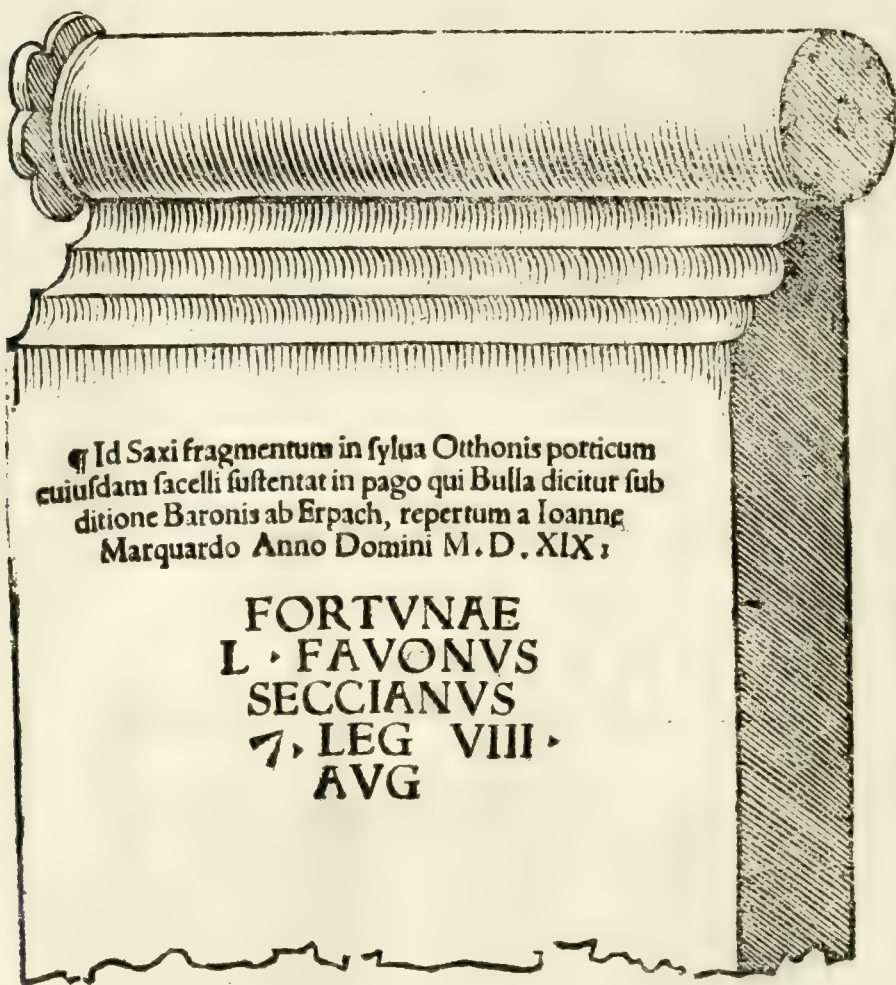 ¶ Id Saxi fragmentum in ſylua Otthonis porticum
cuiuſdam ſacelli ſuſtentat in pago qui Bulla dicitur ſub
ditione Baronis ab Erpach, repertum a Ioanne
Marquardo Anno Domini M. D. XIX ;
FORTVNAE
L · FAVONVS
SECCIANVS
7, LEG VIII ·
AVG